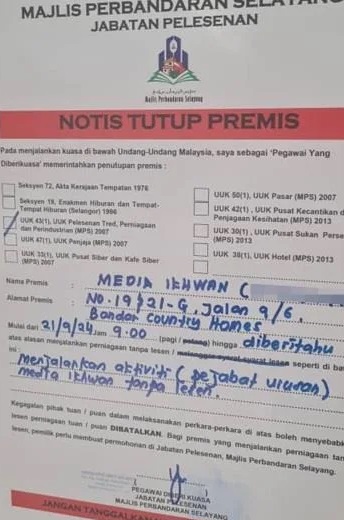 MAJLIS PERBANDARAN SELAYANG
JABATAN PELESENAN
Majlis Perbandaran Selayang
NOTIS TUTUP PREMIS
Pada menjalankan kuasa di bawah Undang-Undang Malaysia, saya sebagai 'Pegawai Yang
Diberikuasa' memerintahkan penutupan premis :
Seksyen 72, Akta Kerajaan Tempatan 1976
Seksyen 19, Enakmen Hiburan dan Tempat-
Tempat Hiburan (Selangor) 1996
UUK 43(1), UUK Pelesenan Tred, Perniagaan
dan Perindustrian (MPS) 2007
UUK 47(1), UUK Penjaja (MPS) 2007
UUK 33(1), UUK Pusat Siber dan Kafe Siber
(MPS) 2007
UUK 50(1), UUK Pasar (MPS) 2007
UUK 42(1) , UUK Pusat Kecantikan d
Penjagaan Kesihatan (MPS) 2013
UUK 30(1) , UUK Pusat Sukan Perse
(MPS) 2013
UUK 38(1), UUK Hotel (MPS) 2013
Nama Premis : MEDIA IKHWAN (
Alamat Premis : NO. 19 & 21-G, Jalan 9/6,
Bandar Country Homes
Mulai dari 21/9/24 Jam 9.00 (pagi / petang) hingga diberitahu
atas alasan menjalankan perniagaan tanpa lesen / melanggar syarat-syarat lesen seperti di ba
ini :
Menjalankan aktiviti (pejabat urusan)
media ikhwan tanpa lesen.
Kegagalan pihak tuan / puan dalam melaksanakan perkara-perkara di atas boleh menyebabk
lesen perniagaan tuan / puan DIBATALKAN. Bagi premis yang menjalankan perniagaan tan
lesen, pemilik perlu membuat permohonan di Jabatan Pelesenan, Majlis Perbandaran Selayang.
PEGAWAI DIBERI KUASA
JABATAN PELESENAN
MAJLIS PERBANDARAN SELAYANG
JANGAN TANGGALKAN